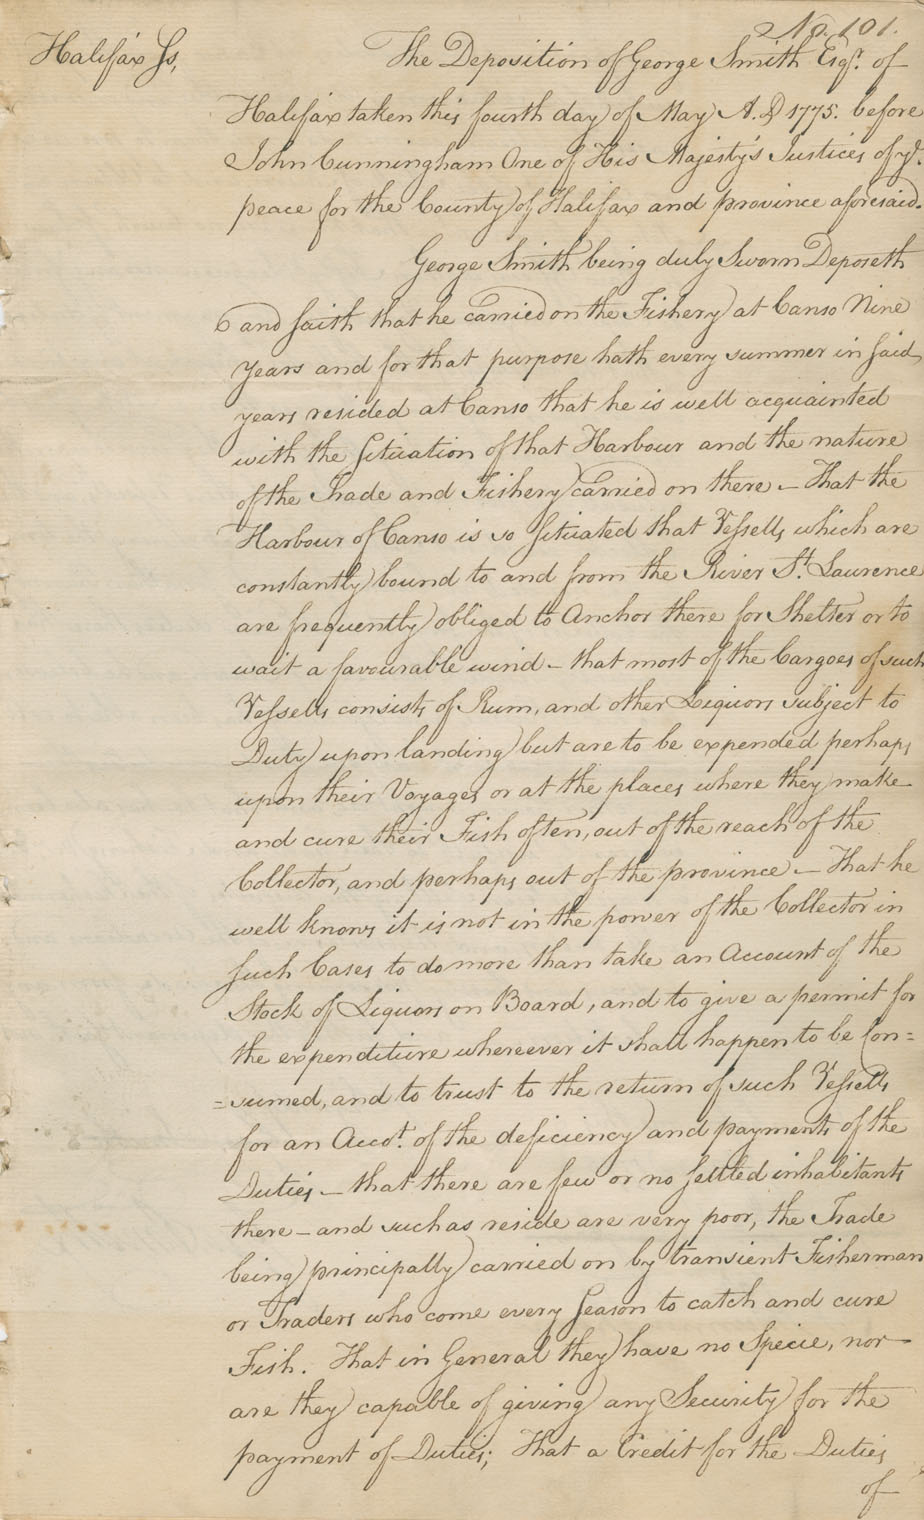 No. 101.
Halifax Ss,
The Deposition of George Smith Esqr. of
Halifax taken this fourth day of May A.D 1775. before
John Cunningham One of His Majesty's Justices of ye.
peace for the County of Halifax and province aforesaid.
George Smith being duly Sworn Deposeth
and saith that he carried on the Fishery at Canso Nine
Years and for that purpose hath every summer in said
years resided at Canso that he is well acquainted
with the Situation of that Harbour and the nature
of the Trade and Fishery carried on there – That the
Harbour of Canso is so Situated that Vessells which are
constantly bound to and from the River St. Laurence
are frequently obliged to Anchor there for Shelter or to
wait a favourable wind – that most of the Cargoes of such
Vessells consists of Rum, and other Liquors subject to
Duty upon landing but are to be expended perhaps
upon their Voyages or at the places where they make
and cure their Fish often, out of the reach of the
Collector, and perhaps out of the province – That he
well knows it is not in the power of the Collector in
such Cases to do more than take an Account of the
Stock of Liquors on Board, and to give a permit for
the expenditure whereever it shall happen to be Con=
=sumed, and to trust to the return of such Vessells
for an Accot. of the deficiency and payments of the
Duties – that there are few or no settled inhabitants
there – and such as reside are very poor, the Trade
being principally carried on by transient Fisherman
or Traders who come every Season to catch and cure
Fish. That in General they have no Specie, nor
are they capable of giving any Security for the
payment of Duties; That a Credit for the Duties
of